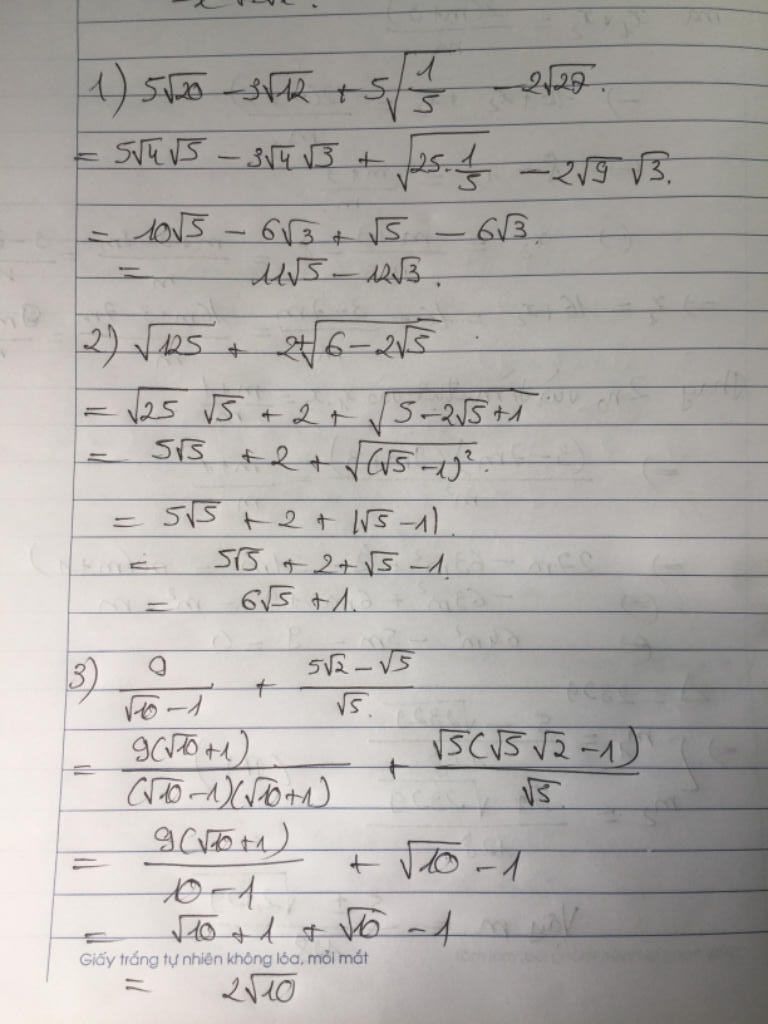 1) 5√20 - 3√12 + 5√(1/5) - 2√27.
= 5√4 √5 - 3√4 √3 + √(25.1/5) - 2√9 √3.
= 10√5 - 6√3 + √5 - 6√3.
= 11√5 - 12√3.
2) √125 + 2+√(6 - 2√5)
= √25 √5 + 2 + √(5 - 2√5 + 1)
= 5√5 + 2 + √((√5 - 1)²).
= 5√5 + 2 + |√5 - 1|.
= 5√5 + 2 + √5 - 1.
= 6√5 + 1.
3) 9/(√10 - 1) + (5√2 - √5)/√5.
= 9(√10 + 1)/((√10 - 1)(√10 + 1)) + √5(√5 √2 - 1)/√5.
= 9(√10 + 1)/(10 - 1) + √10 - 1
= √10 + 1 + √10 - 1
Giấy trắng tự nhiên không lóa, mỏi mắt
= 2√10